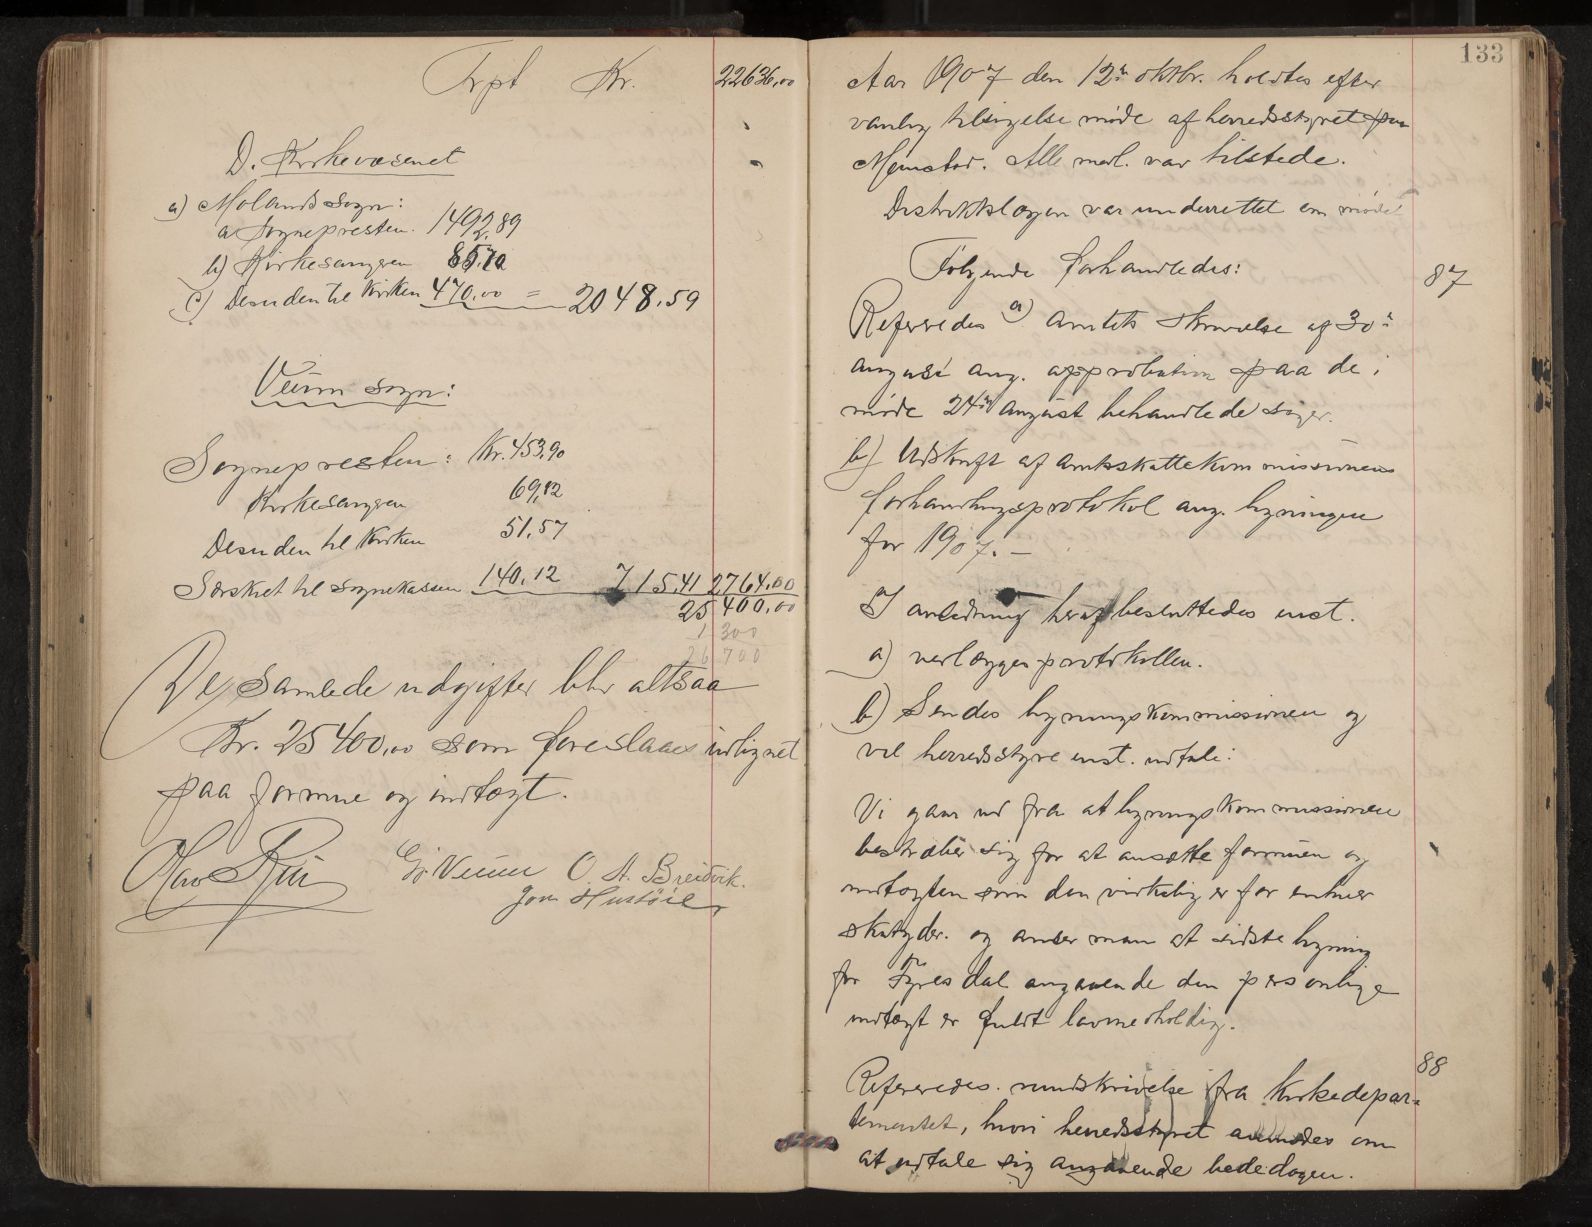 Trpt Kr. 22636,00
D. Kirkevæsenet
a) Molands sogn:
a Sognepresten. 1492,89
b) Kirkesangeren 85,70
c) Desuden til Kirken 470,00 = 2048,59
Veum sogn:
Sognepresten: Kr. 453,90
Kirkesangeren 69,82
Desuden til Kirken 51,57
Særskilt til sognekassen 140,12 715,41 2764,00
25400,00
1300
26700
De samlede udgifter blir altsaa
Kr. 25400,00 som foreslaaes udlignet
paa formue og indtægt.
Olav G. Veum O. A. Breidvik.
Jon Hustöil
133
Aar 1907 den 12te oktbr. holdtes efter
vanlig tilsigelse møde af herredsstyret paa
Momstad. Alle medl. var tilstede.
Distriktslægen var underrettet om mødet
Følgende forhandledes:
87
Refereredes a) Amtets skrivelse af 30te
august ang. approbation paa de i
møde 24de august behandlede sager.
b) Udskrift af amtsskattekommissionens
forhandlingsprotokol ang. ligningen
for 1907. –
I anledning heraf besluttedes enst.
a) vedlægges protokollen.
b) Sendes ligningskommissionen og
vil herredsstyre enst. udtale:
Vi gaar ud fra at ligningskommissionen
bestræber sig for at ansætte formuen og
indtægten som den virkelig er for enhver
skatyder. og anser man at sidste ligning
for Fyresdal angaaende den personlige
indtægt er fuldt lovmedholdig.
88
Refereredes. rundskrivelse fra Kirkedepar=
tementet, hvori herredsstyret anmodes om
at udtale sig angaaende bededagen.